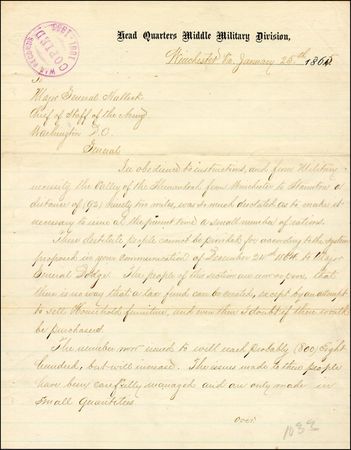 WAR RECORDS
COPIED
1861-1865
Head Quarters Middle Military Division,
Winchester Va. January 25th 1865
To
Major General Halleck
Chief of Staff of the Army
Washington D.C.
General
In obedience to instructions, and from Military
necessity the Valley of the Shenandoah from Winchester to Staunton a
distance of (92) ninety two miles, was so much desolated as to make it
necessary to issue at the present time a small number of rations.
These destitute people cannot be provided for according to the system
proposed in your communication of December 24th 1864 to Major
General Dodge. The people of this section are now so poor that
there is no way that a tax fund can be created, except by an attempt
to sell Household furniture, and even then I doubt if there would
be purchasers.
The number now issued to will reach probably (800) Eight
hundred, but will increase. The issues made to these people
have been carefully managed and are only made in
small quantities
over
1033